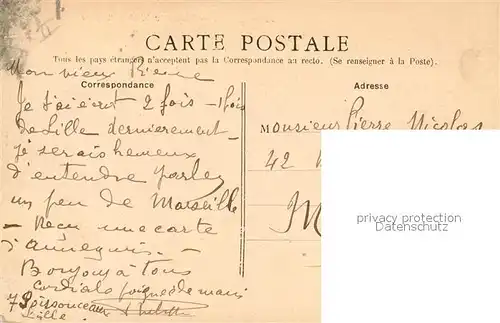 CARTE POSTALE
Tous les pays étrangers n'acceptent pas la Correspondance au recto. (Se renseigner à la Poste).
Mon vieux Pierre
Correspondance
Adresse
Je t'ai écrit 2 fois – 1 fois
de Lille dernièrement –
je serais heureux
d'entendre parler
un peu de Marseille
– Reçu une carte
d'
Bonjour à tous
cordiale poignée de main
Lille
Monsieur Pierre Nicolas
42
M
privacy protection